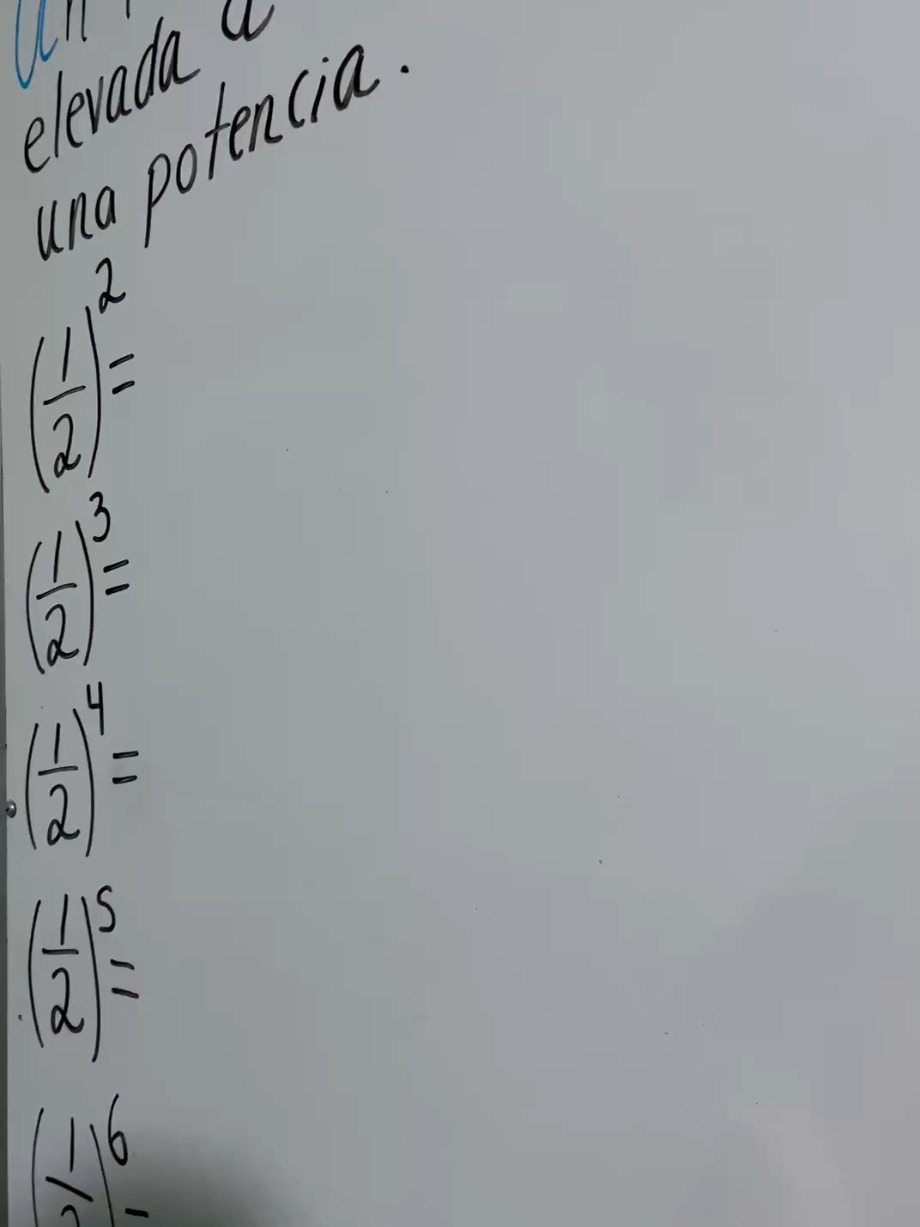 elevada a
una potencia.
(1/2)^2 =
(1/2)^3 =
(1/2)^4 =
(1/2)^5 =
(1/2)^6 =